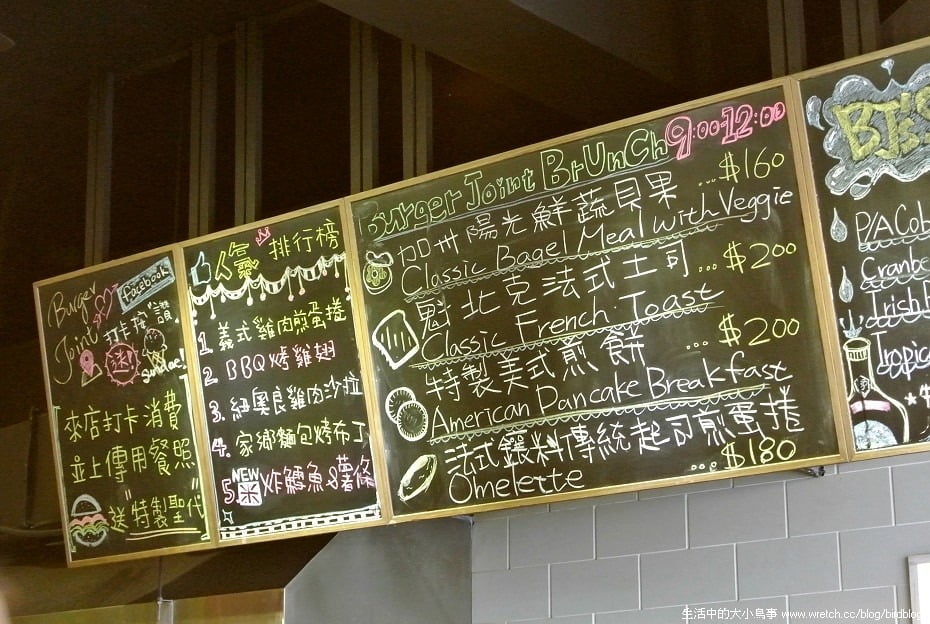 Burger
Joint
facebook
打卡按"讚"
送!
sundae!
來店打卡消費
並上傳用餐照
送"特製聖代"
人氣排行榜
1. 義式雞肉煎蛋捲
2. BBQ烤雞翅
3. 紐奧良雞肉沙拉
4. 家鄉麵包烤布丁
5. NEW 炸鱈魚&薯條
Burger Joint BrUnCh 9:00-12:00
加州陽光鮮蔬貝果 ...$160
Classic Bagel Meal with Veggie
魁北克法式土司 ...$200
Classic French Toast
特製美式煎餅 ...$200
American Pancake Breakfast
法式餡料傳統起司煎蛋捲
Omelette ...$180
P/ACob
Cranbe
Irish
Tropic
生活中的大小鳥事 www.wretch.cc/blog/birdblog